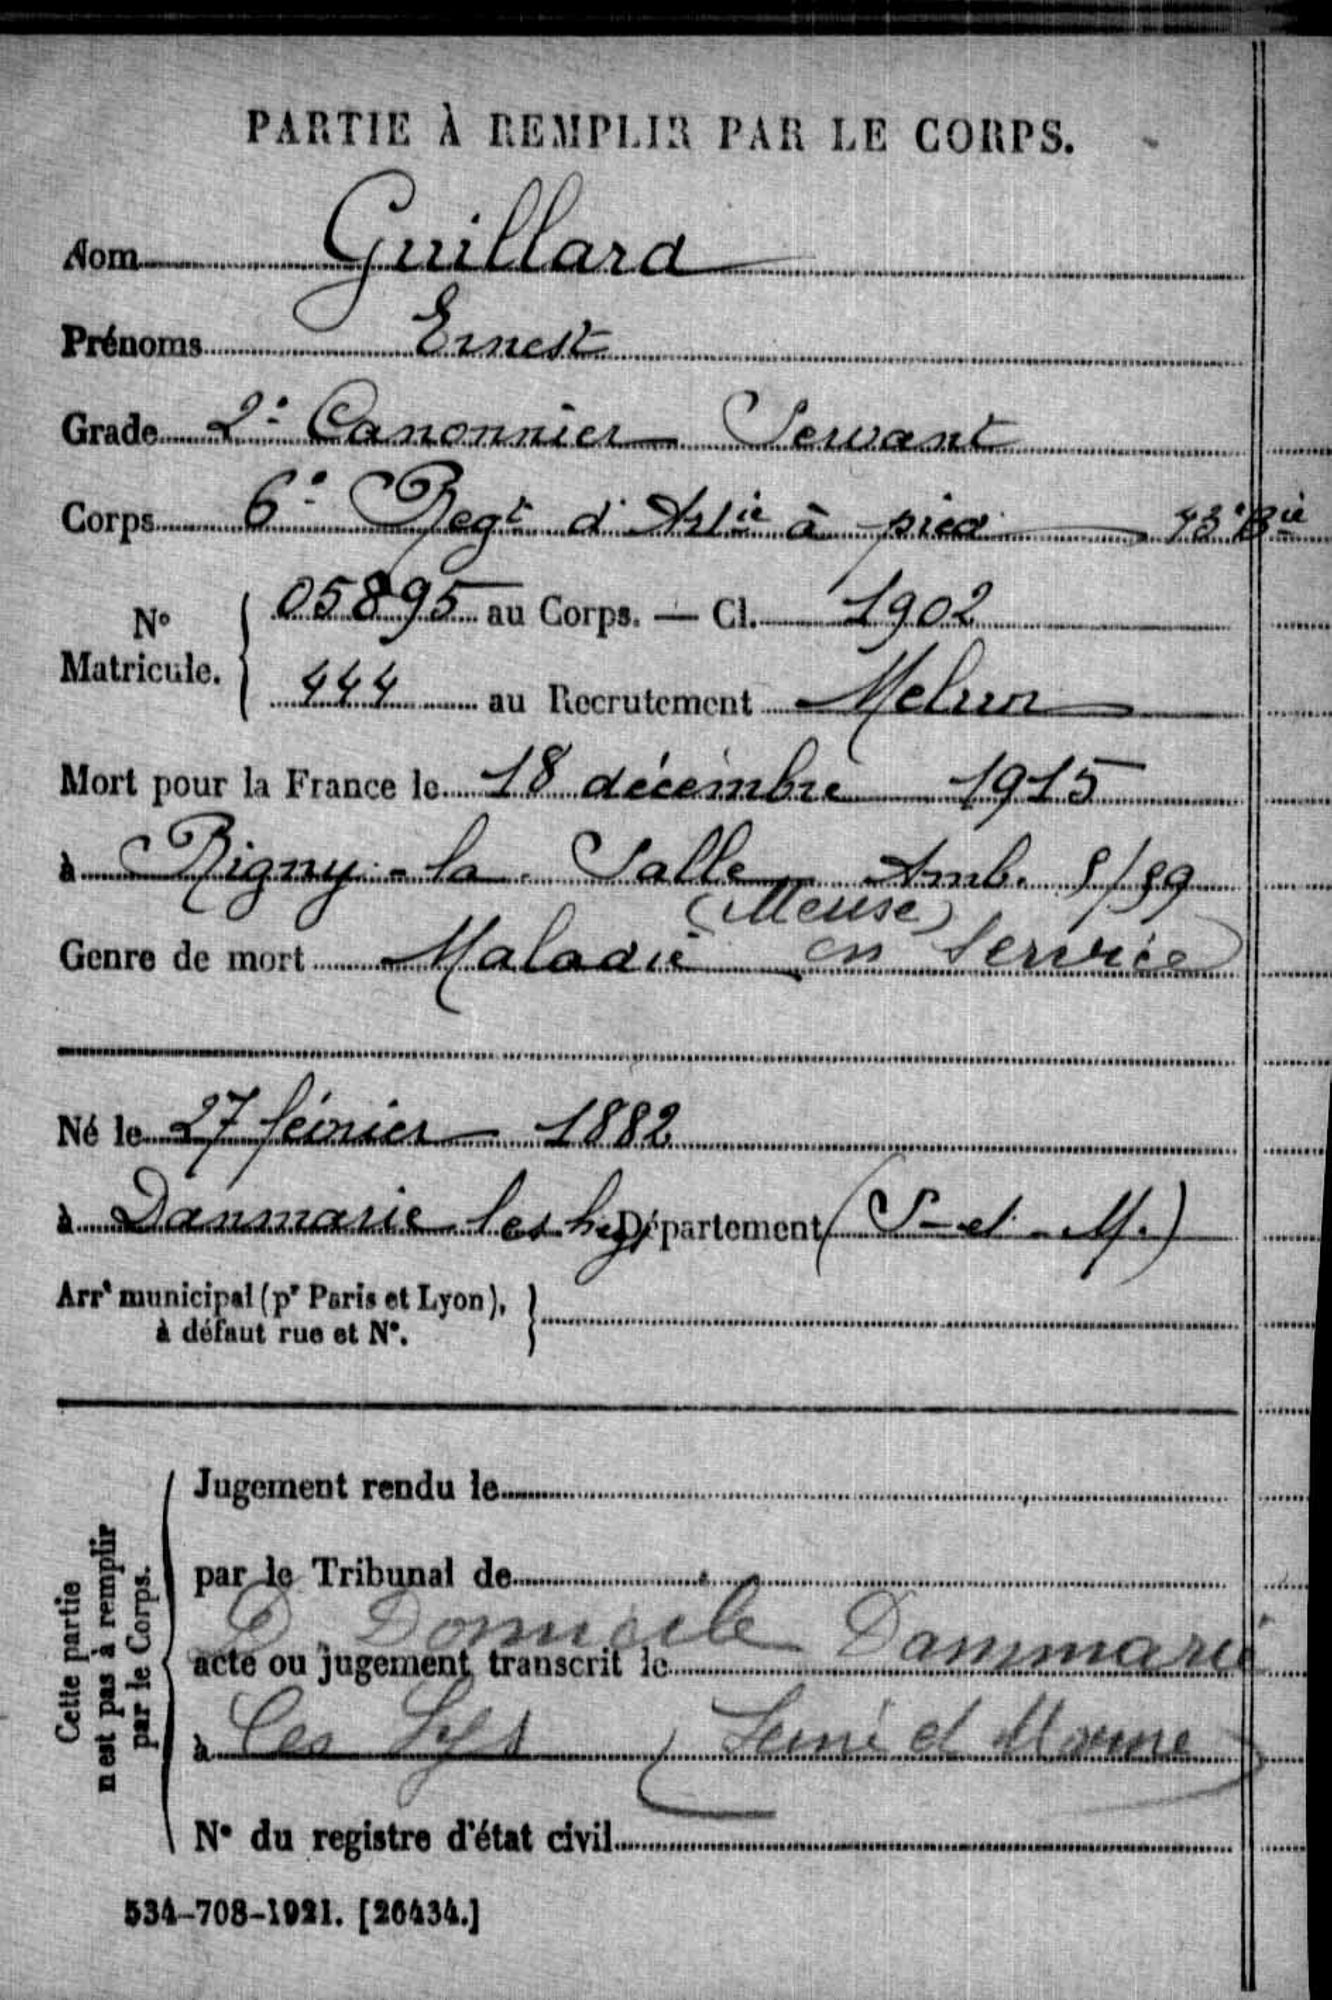 PARTIE À REMPLIR PAR LE CORPS.
Nom Guillard
Prénoms Ernest
Grade 2e Canonnier Servant
Corps 6e Regt d'Artie à pied 43e Bie
05895 au Corps. — Cl. 1902
N° Matricule.
444 au Recrutement Melun
Mort pour la France le 18 décembre 1915
à Rigny-la-Salle Amb. 5/59
(Meuse)
Genre de mort Maladie en Service
Né le 27 février 1882
à Danmarie les Lys Département (S-et-M.)
Arrt municipal (pr Paris et Lyon),
à défaut rue et N°.
Cette partie n'est pas à remplir par le Corps.
Jugement rendu le
par le Tribunal de
D Domicile Dammarie
acte ou jugement transcrit le
à les Lys (Seine et Marne)
N° du registre d'état civil
534-708-1921. [26434.]